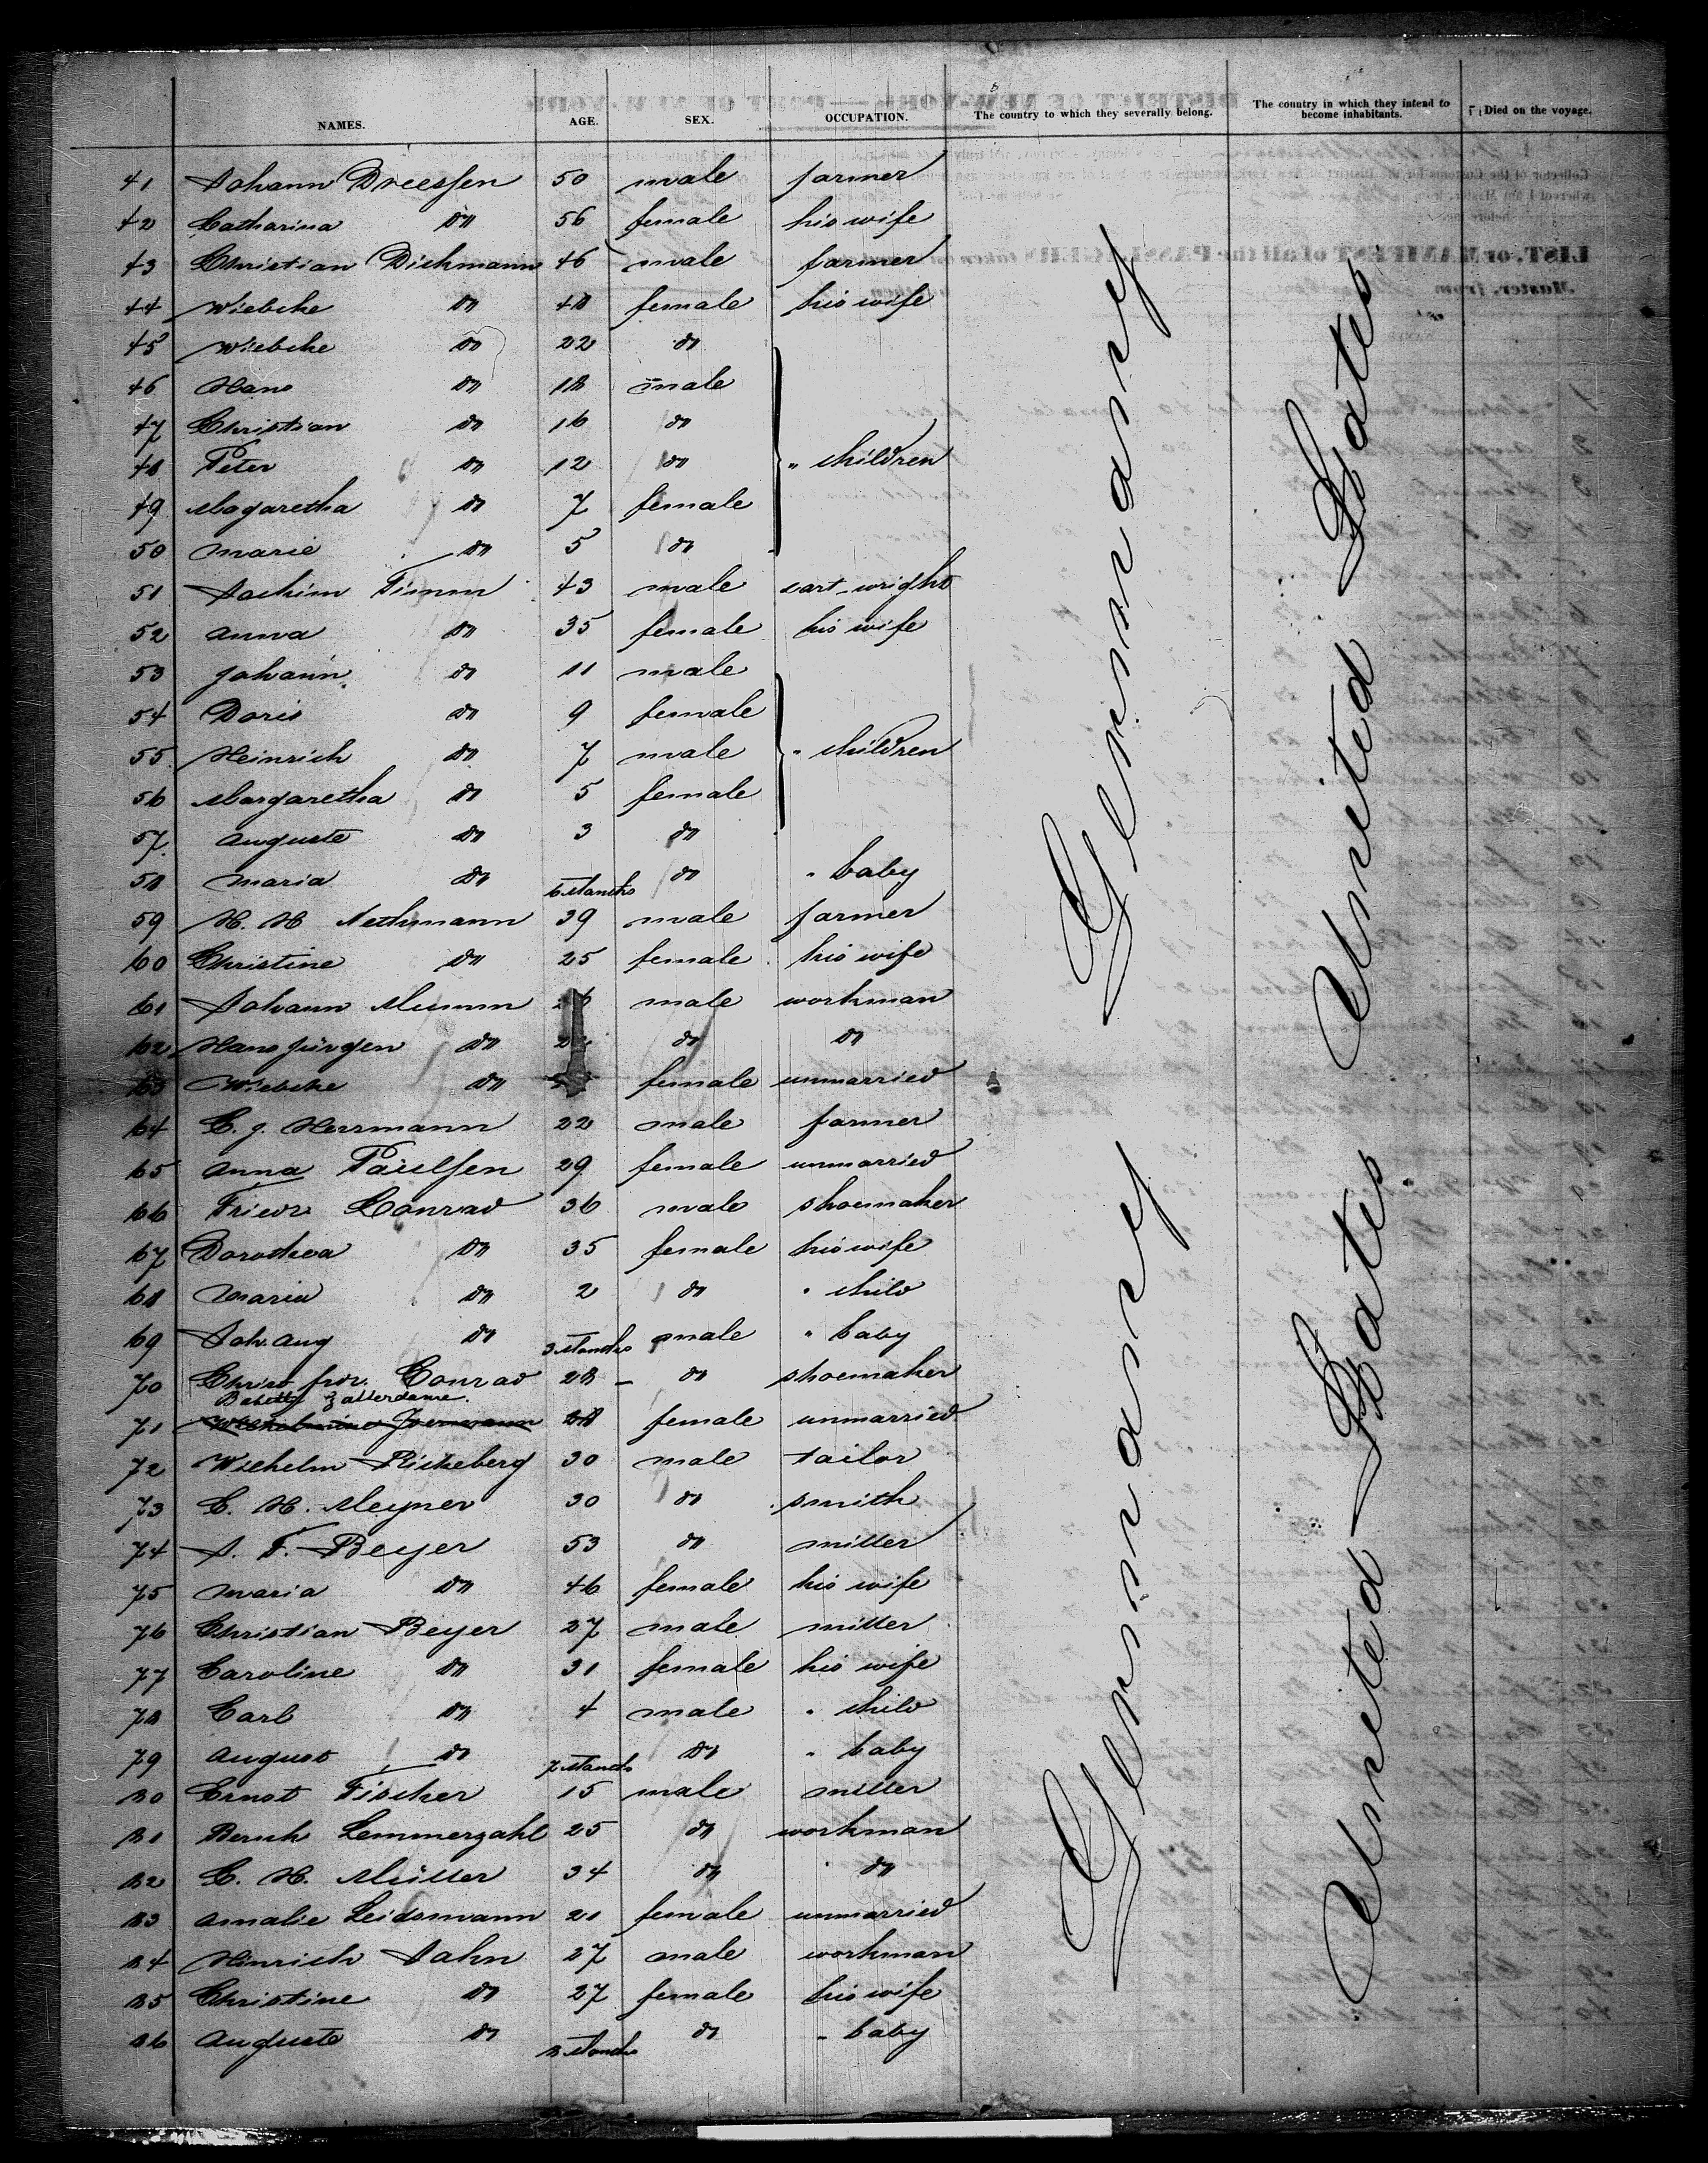 NAMES. AGE. SEX. OCCUPATION. The country to which they severally belong. The country in which they intend to become inhabitants. Died on the voyage.
41 Johann Dreessen 50 male farmer
42 Catharina do 56 female his wife
43 Christian Dickmann 46 male farmer
44 Wiebcke do 48 female his wife
45 Wiebcke do 22 do
46 Hans do 18 male
47 Christian do 16 do
48 Peter do 12 do " children
49 Magaretha do 7 female
50 Marie do 5 do
51 Jochim Timm 43 male cart-wright
52 Anna do 35 female his wife
53 Johann do 11 male
54 Doris do 9 female
55 Heinrich do 7 male " children
56 Margaretha do 5 female
57 Auguste do 3 do
58 Maria do 6 Months do " baby
59 H. H. Nethmann 39 male farmer
60 Christine do 25 female his wife
61 Johann Mumm male workman
62 Hans Jürgen do do do
63 Wiebcke do female unmarried
64 C. J. Herrmann 22 male farmer
65 Anna Paulsen 29 female unmarried
66 Friedr Conrad 36 male shoemaker
67 Dorothea do 35 female his wife
68 Maria do 2 do " child
69 Joh. Aug do 3 Months male " baby
70 Christ. frdr. Conrad 28 – do shoemaker
71 28 female unmarried
72 Wilhelm Rickeberg 30 male tailor
73 C. H. Meyner 30 do smith
74 J. F. Beyer 53 do miller
75 Maria do 46 female his wife
76 Christian Beyer 27 male miller
77 Caroline do 31 female his wife
78 Carl do 4 male " child
79 August do 7 Months do " baby
80 Ernst Fischer 15 male miller
81 Bernh Lemmerzahl 25 do workman
82 C. H. Müller 34 do do
83 Amalie Leidsmann 21 female unmarried
84 Hinrich Jahn 27 male workman
85 Christine do 27 female his wife
86 Auguste do 8 Months do " baby
Germany
Germany
United States
United States